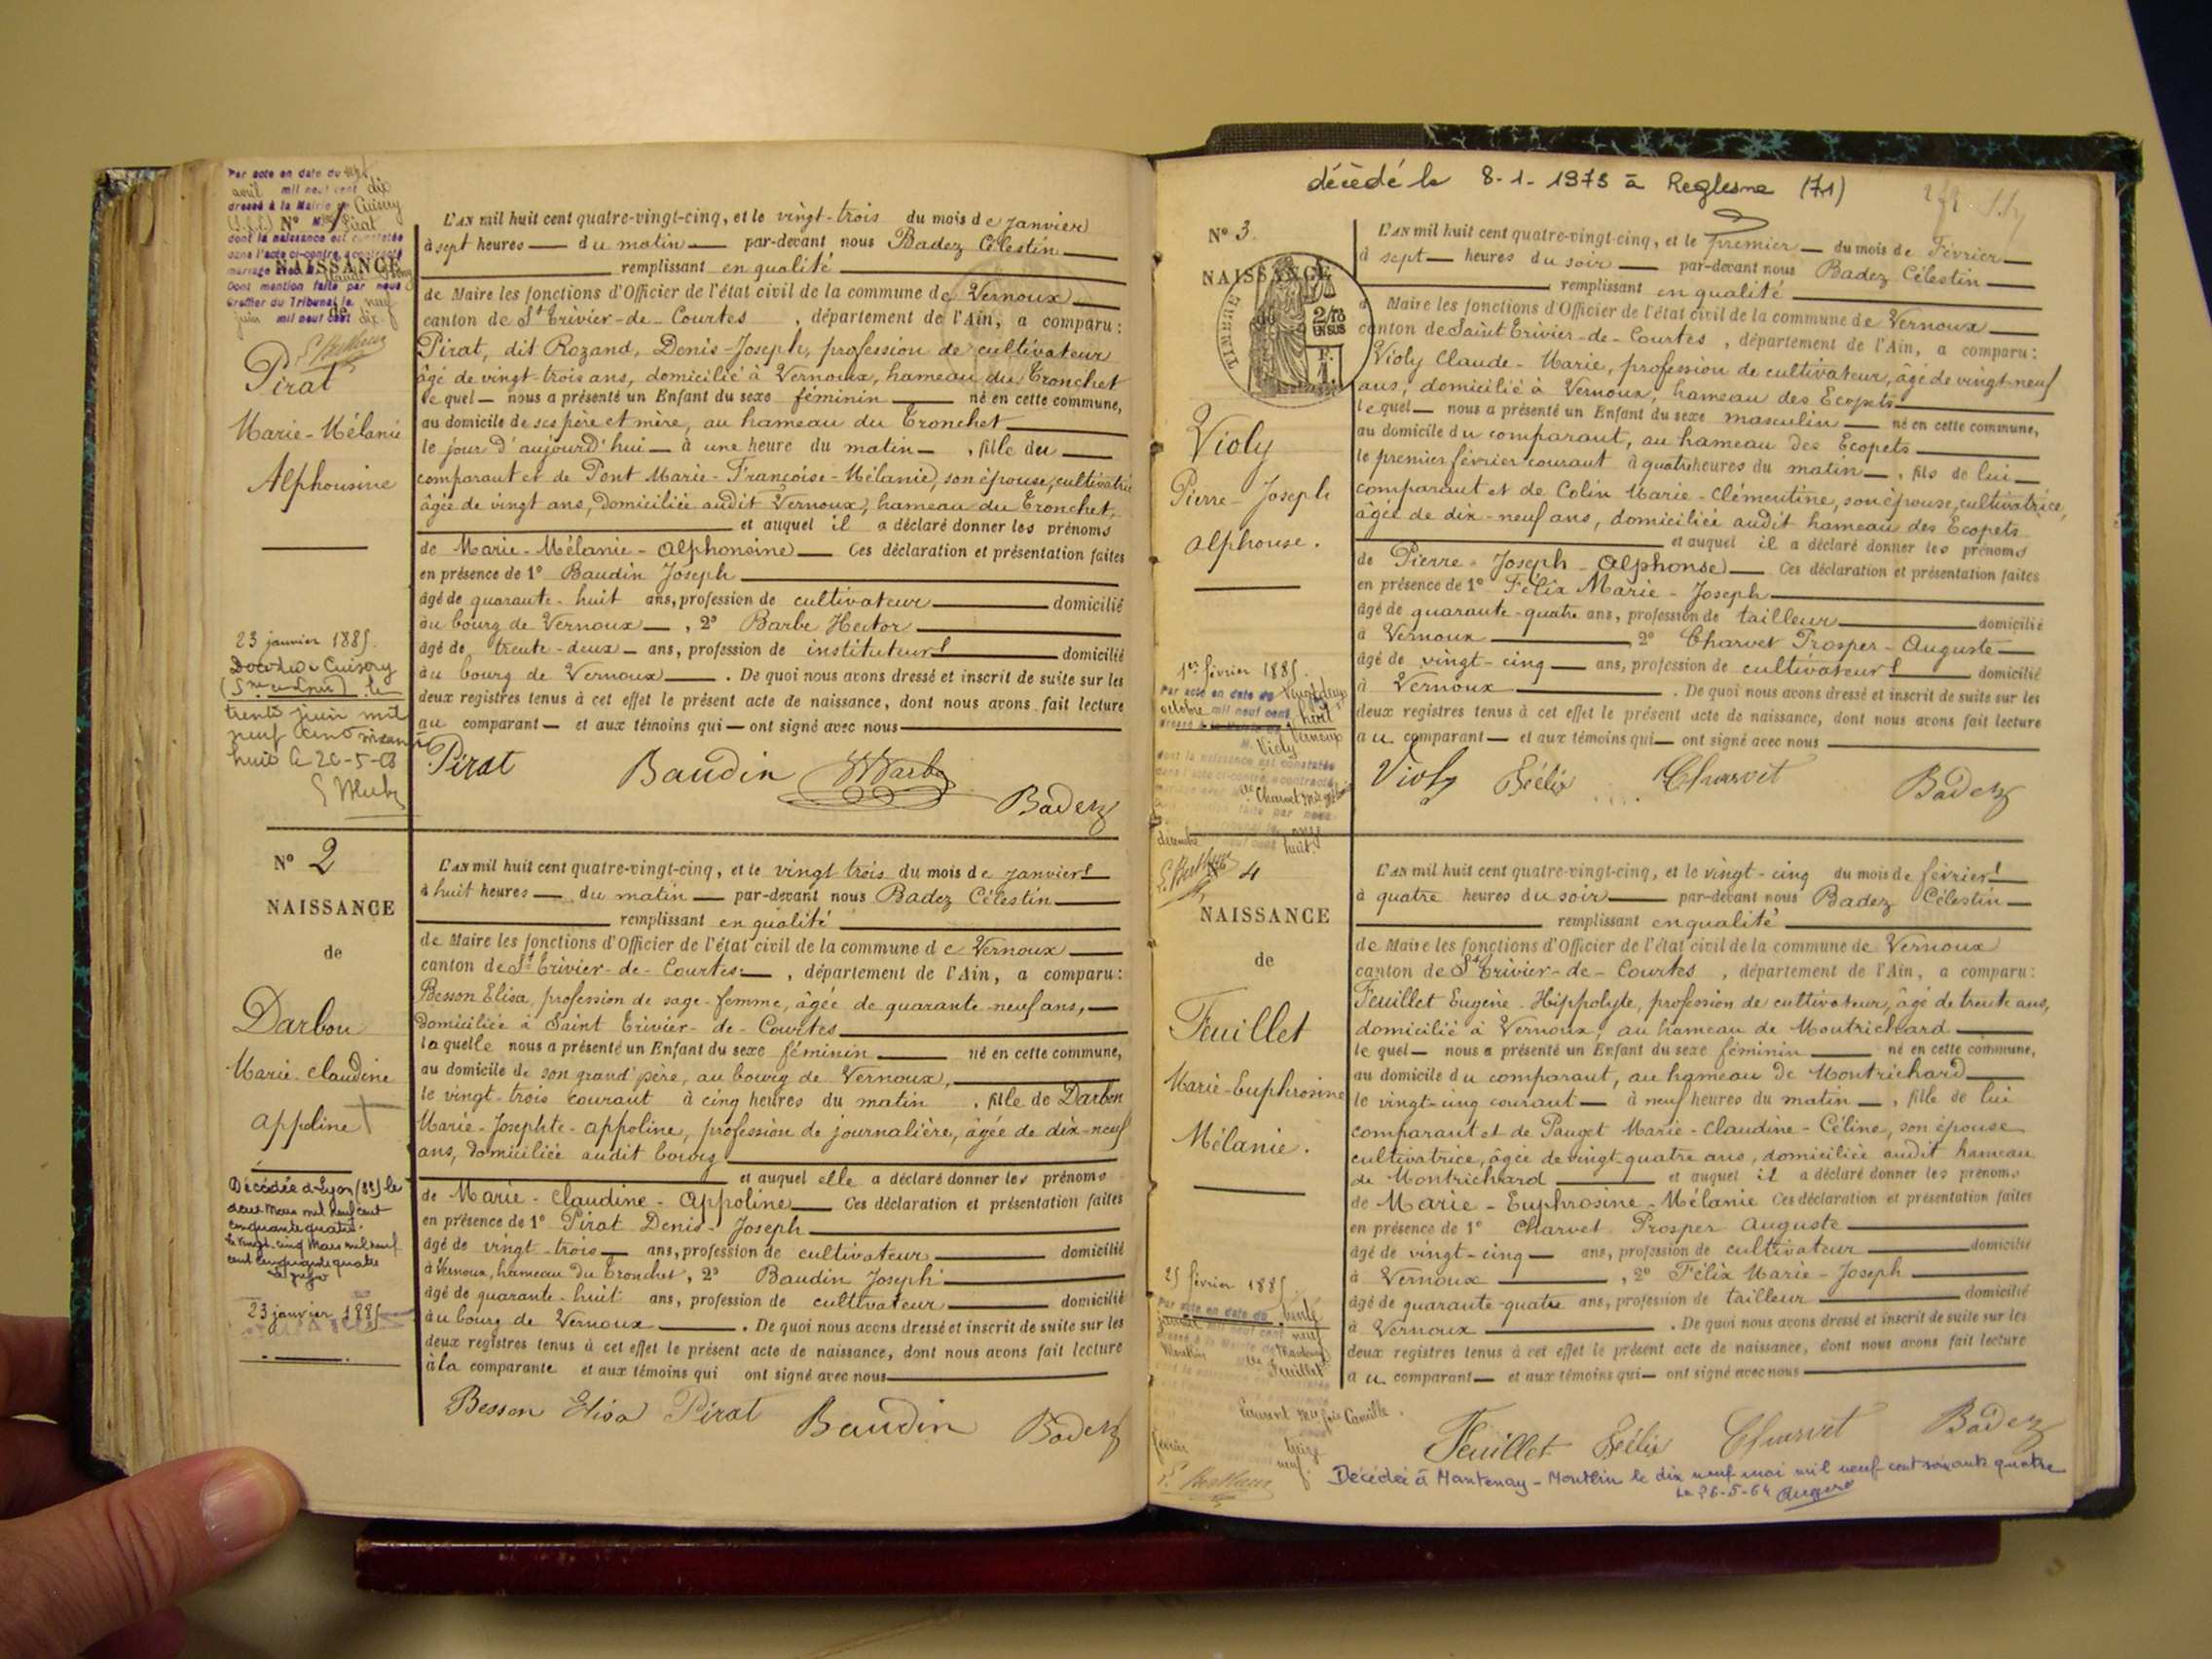 Par acte en date du sept
avril mil neuf cent dix
dressé à la Mairie de Cuisery
(S.&L.) N° 1 Mlle Pirat
dont la naissance est constatée
dans l'acte ci-contre, a contracté
mariage avec
NAISSANCE
Dont mention faite par nous
Greffier du Tribunal le neuf
de
juin mil neuf cent dix
Pirat
Marie-Mélanie
Alphonsine
23 janvier 1885.
Décédée à Cuisery
(Sne et Loire) le
trente juin mil
neuf cent soixante
huit le 20-5-68
L'AN mil huit cent quatre-vingt-cinq, et le vingt-trois du mois de janvier
à sept heures du matin par-devant nous Badez Célestin
remplissant en qualité
de Maire les fonctions d'Officier de l'état civil de la commune de Vernoux
canton de St Trivier-de-Courtes, département de l'Ain, a comparu :
Pirat, dit Rozand, Denis-Joseph, profession de cultivateur
âgé de vingt-trois ans, domicilié à Vernoux, hameau du Tronchet
lequel nous a présenté un Enfant du sexe féminin né en cette commune,
au domicile de ses père et mère, au hameau du Tronchet
le jour d'aujourd'hui à une heure du matin, fille du
comparant et de Pont Marie-Françoise-Mélanie, son épouse, cultivatrice
âgée de vingt ans, domiciliée audit Vernoux, hameau du Tronchet,
et auquel il a déclaré donner les prénoms
de Marie-Mélanie-Alphonsine Ces déclaration et présentation faites
en présence de 1° Baudin Joseph
âgé de quarante-huit ans, profession de cultivateur domicilié
au bourg de Vernoux, 2° Barbe Hector
âgé de trente-deux ans, profession de instituteur domicilié
au bourg de Vernoux. De quoi nous avons dressé et inscrit de suite sur les
deux registres tenus à cet effet le présent acte de naissance, dont nous avons fait lecture
au comparant et aux témoins qui ont signé avec nous
Pirat Baudin HBarbe Badez
N° 2
NAISSANCE
de
Darbon
Marie-Claudine
Appoline
Décédée à Lyon (8e) le
deux Mars mil neuf cent
cinquante quatre.
Le vingt-cinq Mars mil neuf
cent cinquante quatre
23 janvier 1885
L'AN mil huit cent quatre-vingt-cinq, et le vingt trois du mois de janvier
à huit heures du matin par-devant nous Badez Célestin
remplissant en qualité
de Maire les fonctions d'Officier de l'état civil de la commune de Vernoux
canton de St Trivier-de-Courtes, département de l'Ain, a comparu :
Besson Elisa, profession de sage-femme, âgée de quarante-neuf ans,
domiciliée à Saint Trivier-de-Courtes
laquelle nous a présenté un Enfant du sexe féminin né en cette commune,
au domicile de son grand'père, au bourg de Vernoux,
le vingt-trois courant à cinq heures du matin, fille de Darbon
Marie-Josephte-Appoline, profession de journalière, âgée de dix-neuf
ans, domiciliée audit bourg
et auquel elle a déclaré donner les prénoms
de Marie-Claudine-Appoline Ces déclaration et présentation faites
en présence de 1° Pirat Denis-Joseph
âgé de vingt-trois ans, profession de cultivateur domicilié
à Vernoux, hameau du Tronchet, 2° Baudin Joseph
âgé de quarante-huit ans, profession de cultivateur domicilié
au bourg de Vernoux. De quoi nous avons dressé et inscrit de suite sur les
deux registres tenus à cet effet le présent acte de naissance, dont nous avons fait lecture
à la comparante et aux témoins qui ont signé avec nous
Besson Elisa Pirat Baudin Badez
décédé le 8-1-1973 à (71)
N° 3.
NAISSANCE
TIMBRE
2/10
EN SUS
Violy
Pierre-Joseph
Alphonse.
1er février 1885.
Par acte en date du vingt deux
octobre mil neuf cent huit
Vernoux
M. Violy
dont la naissance est constatée
dans l'acte ci-contre, a contracté
Charvet
décembre
huit.
L'AN mil huit cent quatre-vingt-cinq, et le premier du mois de Février
à sept heures du soir par-devant nous Badez Célestin
remplissant en qualité
Maire les fonctions d'Officier de l'état civil de la commune de Vernoux
canton de Saint Trivier-de-Courtes, département de l'Ain, a comparu :
Violy Claude-Marie, profession de cultivateur, âgé de vingt-neuf
ans, domicilié à Vernoux, hameau des Ecopets
lequel nous a présenté un Enfant du sexe masculin né en cette commune,
au domicile du comparant, au hameau des Ecopets
le premier février courant à quatre heures du matin, fils de lui
comparant et de Colin Marie-Clémentine, son épouse, cultivatrice,
âgée de dix-neuf ans, domiciliée audit hameau des Ecopets
et auquel il a déclaré donner les prénoms
de Pierre-Joseph-Alphonse Ces déclaration et présentation faites
en présence de 1° Félix Marie-Joseph
âgé de quarante-quatre ans, profession de tailleur domicilié
à Vernoux 2° Charvet Prosper-Auguste
âgé de vingt-cinq ans, profession de cultivateur domicilié
à Vernoux. De quoi nous avons dressé et inscrit de suite sur les
deux registres tenus à cet effet le présent acte de naissance, dont nous avons fait lecture
au comparant et aux témoins qui ont signé avec nous
Violy Félix Charvet Badez
N° 4
NAISSANCE
de
Feuillet
Marie-Euphrosine
Mélanie.
25 février 1885.
Par acte en date du trente
janvier mil neuf cent neuf
Feuillet
février treize
neuf.
L'AN mil huit cent quatre-vingt-cinq, et le vingt-cinq du mois de février
à quatre heures du soir par-devant nous Badez Célestin
remplissant en qualité
de Maire les fonctions d'Officier de l'état civil de la commune de Vernoux
canton de St Trivier-de-Courtes, département de l'Ain, a comparu :
Feuillet Eugène-Hippolyte, profession de cultivateur, âgé de trente ans,
domicilié à Vernoux, au hameau de Montrichard
lequel nous a présenté un Enfant du sexe féminin né en cette commune,
au domicile du comparant, au hameau de Montrichard
le vingt-cinq courant à neuf heures du matin, fille de lui
comparant et de Pauget Marie-Claudine-Céline, son épouse
cultivatrice, âgée de vingt-quatre ans, domiciliée audit hameau
de Montrichard et auquel il a déclaré donner les prénoms
de Marie-Euphrosine-Mélanie Ces déclaration et présentation faites
en présence de 1° Charvet Prosper Auguste
âgé de vingt-cinq ans, profession de cultivateur domicilié
à Vernoux, 2° Félix Marie-Joseph
âgé de quarante-quatre ans, profession de tailleur domicilié
à Vernoux. De quoi nous avons dressé et inscrit de suite sur les
deux registres tenus à cet effet le présent acte de naissance, dont nous avons fait lecture
au comparant et aux témoins qui ont signé avec nous
Feuillet Félix Charvet Badez
Décédée à Mantenay-Montlin le dix neuf mai mil neuf cent soixante quatre
Le 26-5-64